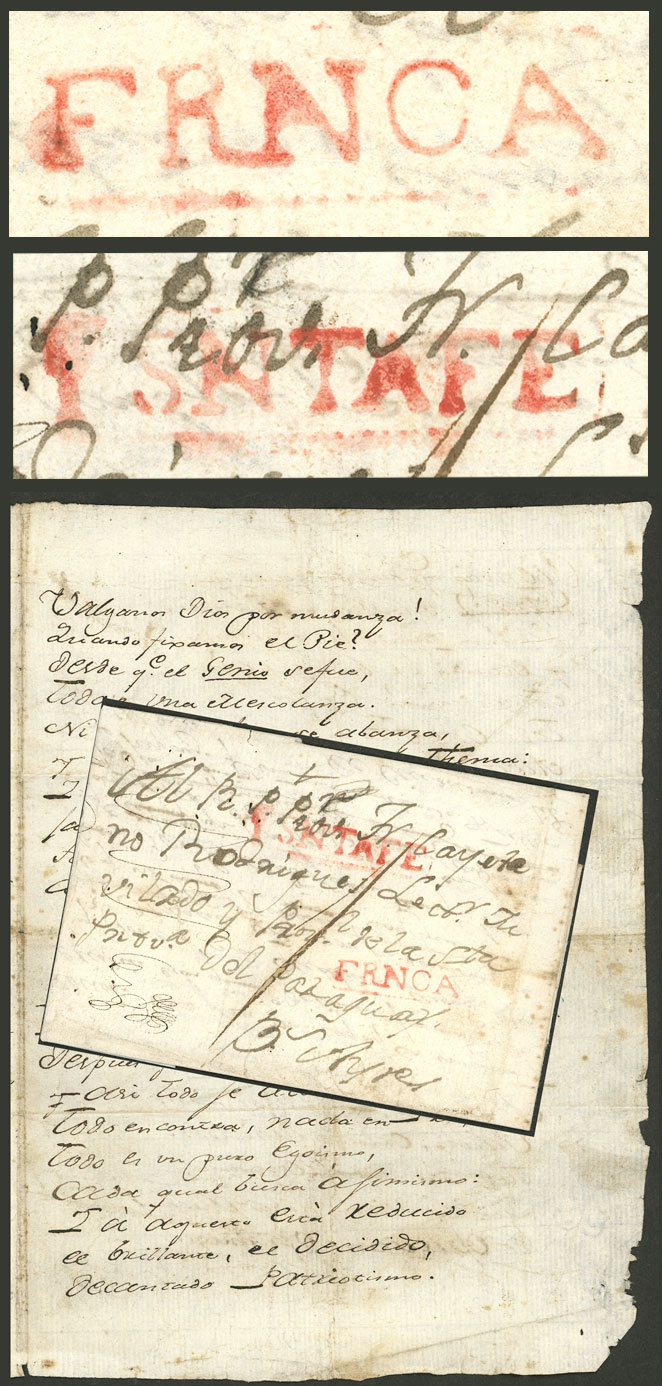 FRNCA
P. Prov. Fr. Ca
SNTAFE
Valganos Dios por mudanza!
Quando fixamos el Pie?
desde q.e el Genio se fue,
una Mescolanza.
Ni se abanza,
thema:
Al R. P. Prov. Fr. Cayeta
SNTAFE
no Rodrigues Lect. Ju
vilado y Prov. de la Sta
FRNCA
Prov.a del Paraguay.
B.s Ayres
Despues
I asi todo se a
todo encontra, nada en
todo es un puro Egoismo,
cada qual busca à si mismo:
I à aquesto està reducido
el brillante, el decidido,
decantado Patriotismo.